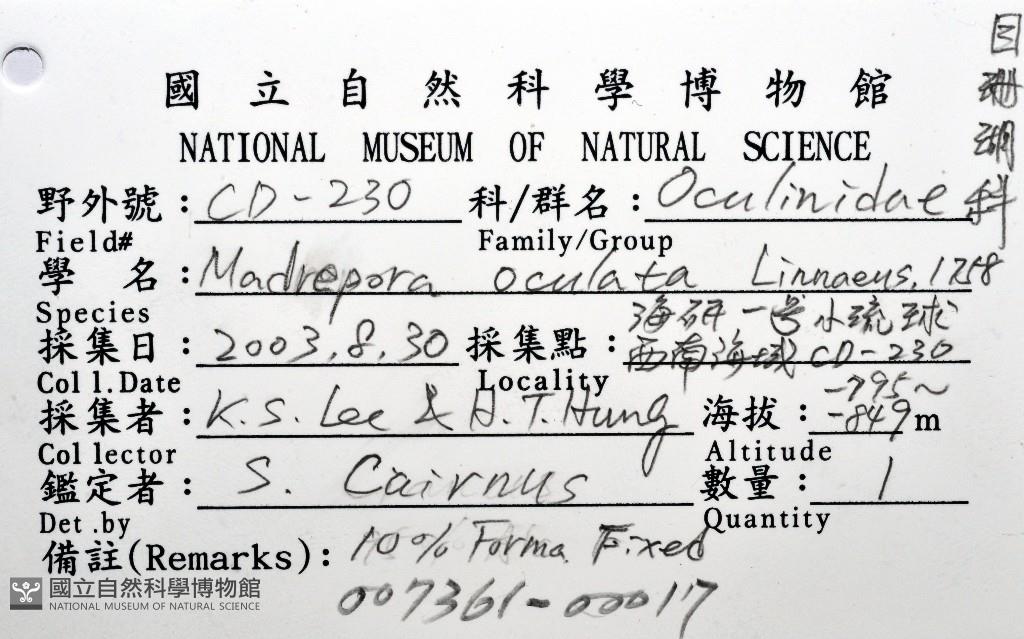 國立自然科學博物館
NATIONAL MUSEUM OF NATURAL SCIENCE
野外號: CD-230 科/群名: Oculinidae 目珊瑚科
Field# Family/Group
學名: Madrepora oculata Linnaeus, 1758
Species
採集日: 2003.8.30 採集點: 海研一号小琉球
西南海域 CD-230
Coll.Date Locality
採集者: K.S. Lee & H.T.Hung 海拔: -795~
-849m
Collector Altitude
鑑定者: S. Cairnus 數量: 1
Det.by Quantity
備註(Remarks): 10% Forma. Fixed
007361-00017
國立自然科學博物館
NATIONAL MUSEUM OF NATURAL SCIENCE